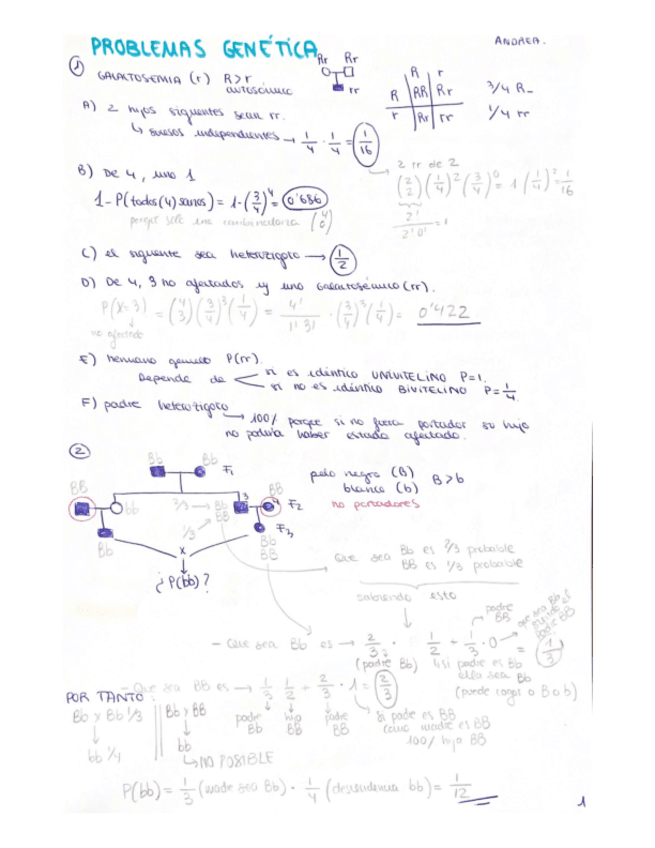 PROBLEMAS GENÉTICA
ANDREA.
① GALACTOSEMIA (r) R>r
autosómico
Rr Rr
rr
R r
R RR Rr
r Rr rr
3/4 R_
1/4 rr
A) 2 hijos siguientes sean rr.
↳ sucesos independientes → 1/4 · 1/4 = 1/16
B) De 4, uno 1
2 rr de 2
(2 2)(1/4)²(3/4)⁰ = 1(1/4)² = 1/16
2!/2!0! = 1
1-P(todos(4) sanos) = 1-(3/4)⁴ = 0'686
porque solo una combinatoria (4 0)
C) el siguiente sea heterozigoto → 1/2
D) De 4, 3 no afectados y uno Galactosémico (rr).
P(X=3) = (4 3)(3/4)³(1/4) = 4!/1!3! · (3/4)³(1/4) = 0'422
no afectado
E) hermano gemelo P(rr).
Depende de
si es idéntico UNIVITELINO P=1.
si no es idéntico BIVITELINO P=1/4
F) padre heterozigoto
→ 100% porque si no fuera portador su hijo
no podría haber estado afectado.
②
Bb Bb F1
pelo negro (B) B>b
blanco (b)
no portadores
BB bb 2/3 → Bb BB 3 BB 4 F2
1/3
Bb Bb BB F3
x
¿P(bb)?
Que sea Bb es 2/3 probable
BB es 1/3 probable
sabiendo esto
padre BB
- Que sea Bb es → 2/3 · 1/2 + 1/3 · 0 = 1/3
(padre Bb) si padre es Bb
ella sea Bb
(puede coger o B o b)
- Que sea BB es → 1/3 1/2 + 2/3 · 1 = 2/3
padre Bb hija BB padre BB
si padre es BB
como madre es BB
100% hija BB
POR TANTO:
Bb x Bb 1/3 Bb x BB
bb 1/4 bb
↳ NO POSIBLE
P(bb) = 1/3 (madre sea Bb) · 1/4 (descendencia bb) = 1/12
1